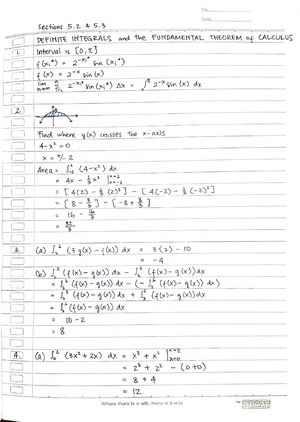 No.
Date
Sections 5.2 & 5.3
DEFINITE INTEGRALS and the FUNDAMENTAL THEOREM of CALCULUS
1. Interval is [0,π]
f(xᵢ*) = 2^-xᵢ* sin (xᵢ*)
f(x) = 2^-x sin (x)
lim n→∞ Σ 2^-xᵢ* sin(xᵢ*) Δx = ∫ 2^-x sin (x) dx
2.
Find where y(x) crosses the x-axis
4-x² = 0
x = +/- 2
Area = ∫ (4-x²) dx
= 4x - 1/3 x³ | x=2 x=-2
= [4(2) - 1/3 (2)³] - [4(-2) - 1/3 (-2)³]
= [8 - 8/3] - [-8 + 8/3]
= 16 - 16/3
= 32/3
3. (a) ∫ (3g(x) - f(x)) dx = 3(2) - 10
= -4
(b) ∫ (f(x) - g(x)) dx - ∫ (f(x) - g(x)) dx
= ∫ (f(x) - g(x)) dx - (-∫ (f(x) - g(x)) dx)
= ∫ (f(x) - g(x)) dx + ∫ (f(x) - g(x)) dx
= ∫ (f(x) - g(x)) dx
= 10 - 2
= 8
4. (a) ∫ (3x² + 2x) dx = x³ + x² | x=2 x=0
= 2³ + 2² - (0+0)
= 8 + 4
= 12
Where there is a will, there is a way